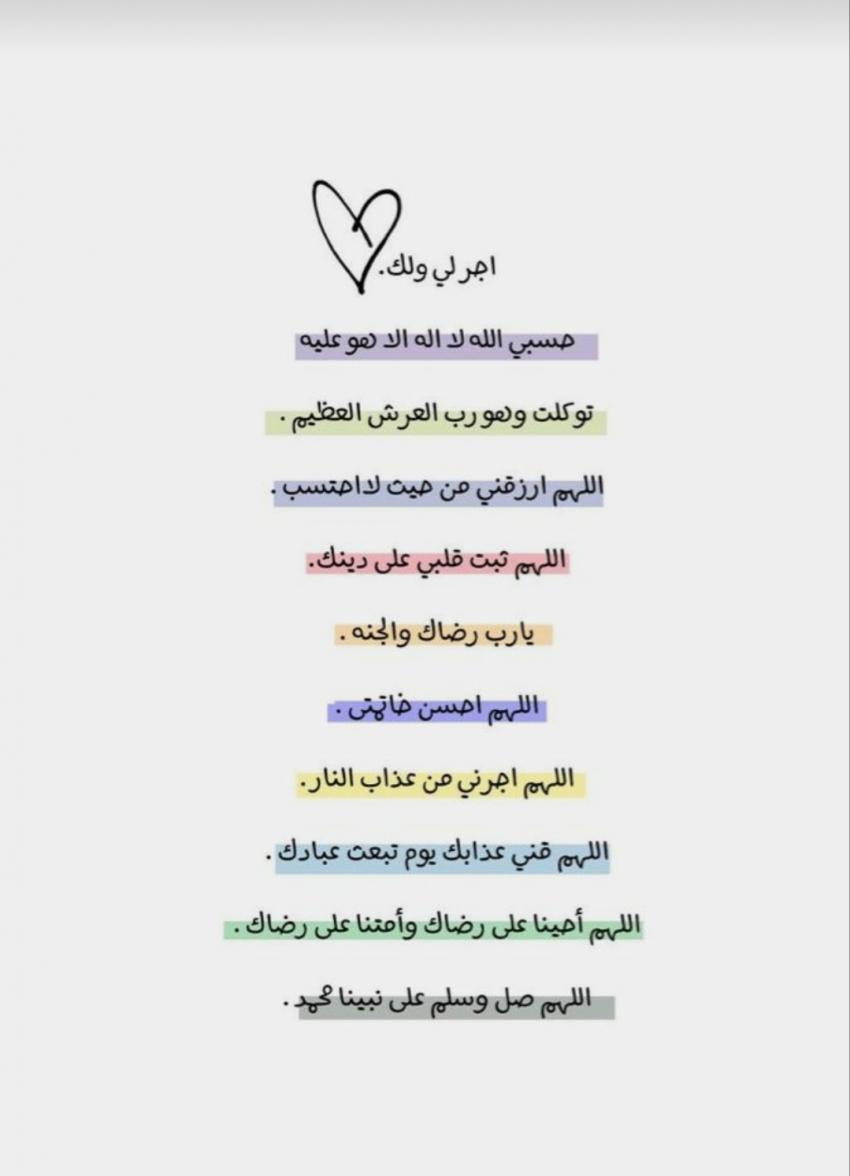 اجر لي ولك.
حسبي الله لا اله الا هو عليه
توكلت وهو رب العرش العظيم .
اللهم ارزقني من حيث لا احتسب .
اللهم ثبت قلبي على دينك.
يارب رضاك والجنه .
اللهم احسن خاتمتى .
اللهم اجرني من عذاب النار.
اللهم قني عذابك يوم تبعث عبادك .
اللهم أحينا على رضاك وأمتنا على رضاك .
اللهم صل وسلم على نبينا محمد .